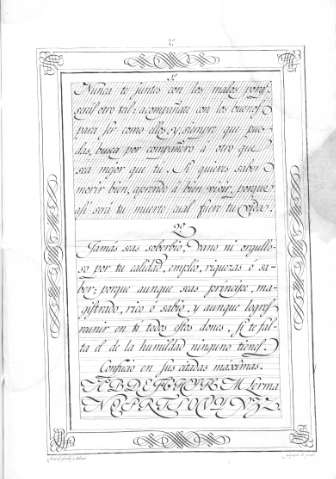 Nunca te juntes con los malos porq.
serás otro tal: acompáñate con los buenos
para ser como ellos, y siempre que pue-
das, busca por compañero á otro que
sea mejor que tu. Si quieres saber
morir bien, aprende á bien vivir, porque
así será tu muerte qual fuere tu vida.
Jamás seas soberbio, vano ni orgullo-
so por tu calidad, empleo, riquezas ó sa-
ber: porque aunque seas príncipe, ma-
gistrado, rico ó sabio, y aunque logres
reunir en ti todos estos dones, si te fal-
ta el de la humildad ninguno tienes.
Confucio en sus citadas máximas.